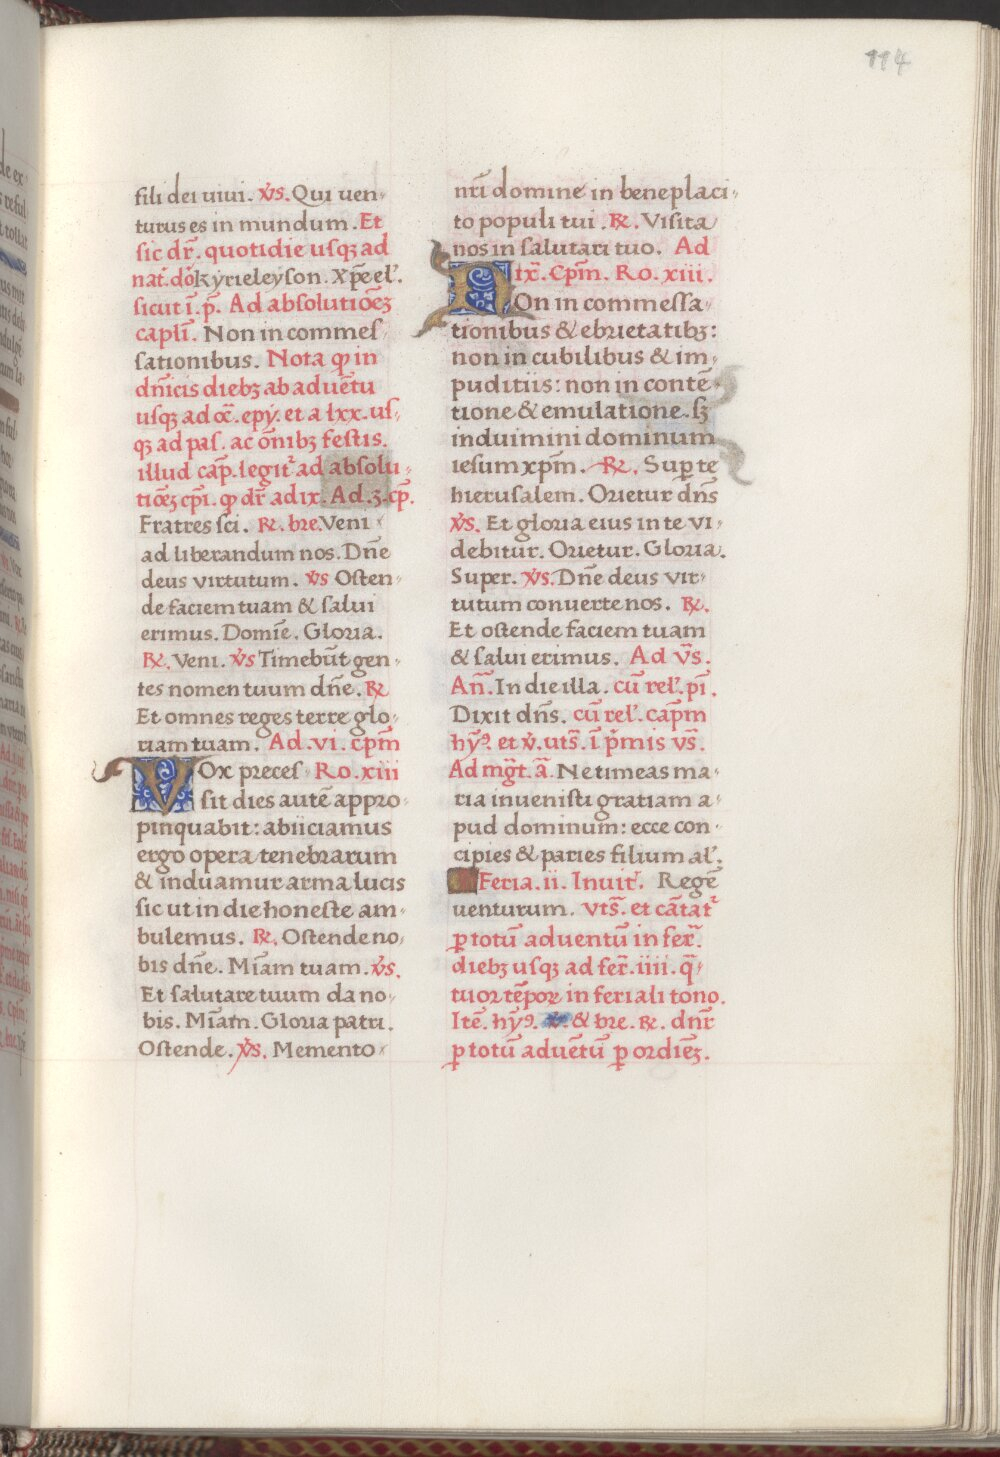 114
fili dei uiui. v̇s. Qui uen-
turus es in mundum. Et
sic dr̄. quotidie usqꝫ ad
nat. do. Kyrieleyson. Xp̄e el'.
sicut ī. p̄. Ad absolutiōeꝫ
caplī. Non in commes-
sationibus. Nota ꝙ in
dn̄icis diebꝫ ab aduētu
usqꝫ ad oc̄. epy. et a lxx. us-
qꝫ ad pas. ac ōnibꝫ festis.
illud cap̄. legitr ad absolu-
tiōeꝫ cp̄i. ꝙ dr̄ ad ix. Ad .3. cp̄.
Fratres sci. ℟. bre. Veni
ad liberandum nos. Dn̄e
deus virtutum. v̇s Osten-
de faciem tuam & salui
erimus. Domīe. Gloria.
℟. Veni. v̇s Timebūt gen-
tes nomen tuum dn̄e. ℟
Et omnes reges terre glo-
riam tuam. Ad .vi. cpm̄
VOx preces Ro. xiii
sit dies autē appro-
pinquabit: abiiciamus
ergo opera tenebrarum
& induamur arma lucis
sic ut in die honeste am-
bulemus. ℟. Ostende no-
bis dn̄e. Miām tuam. v̇s.
Et salutare tuum da no-
bis. Miām. Gloria patri.
Ostende. v̇s. Memento
nrī domine in beneplaci-
to populi tui. ℟. Visita
nos in salutari tuo. Ad
ix̄. Cpm̄. Ro. xiii.
NOn in commessa-
tionibus & ebrietatibꝫ:
non in cubilibus & im-
puditiis: non in contē-
tione & emulatione. sꝫ
induimini dominum
iesum xpm̄. ℟. Suꝑ te
hierusalem. Orietur dn̄s
v̇s. Et gloria eius in te vi-
debitur. Orietur. Gloria.
Super. v̇s. Dn̄e deus vir-
tutum conuerte nos. ℟.
Et ostende faciem tuam
& salui erimus. Ad vs̄.
An̄. In die illa. cū rel'. pī.
Dixit dn̄s. cū rel'. capm̄
hȳꝰ. et v̇. uts̄. ī p̄mis vs̄.
Ad mḡt. ā. Ne timeas ma-
ria inuenisti gratiam a-
pud dominum: ecce con-
cipies & paries filium al'.
Feria. ii. Inuitr. Regē
uenturum. vts̄. et cātatr
ꝑ totū aduentū in fer̄.
diebꝫ usqꝫ ad fer̄. iiii. q̄-
tuor tēpoꝝ in feriali tono.
Itē. hȳꝰ. v̇. & bre. ℟. dnr̄
ꝑ totū aduētū ꝑ ordiēꝫ.